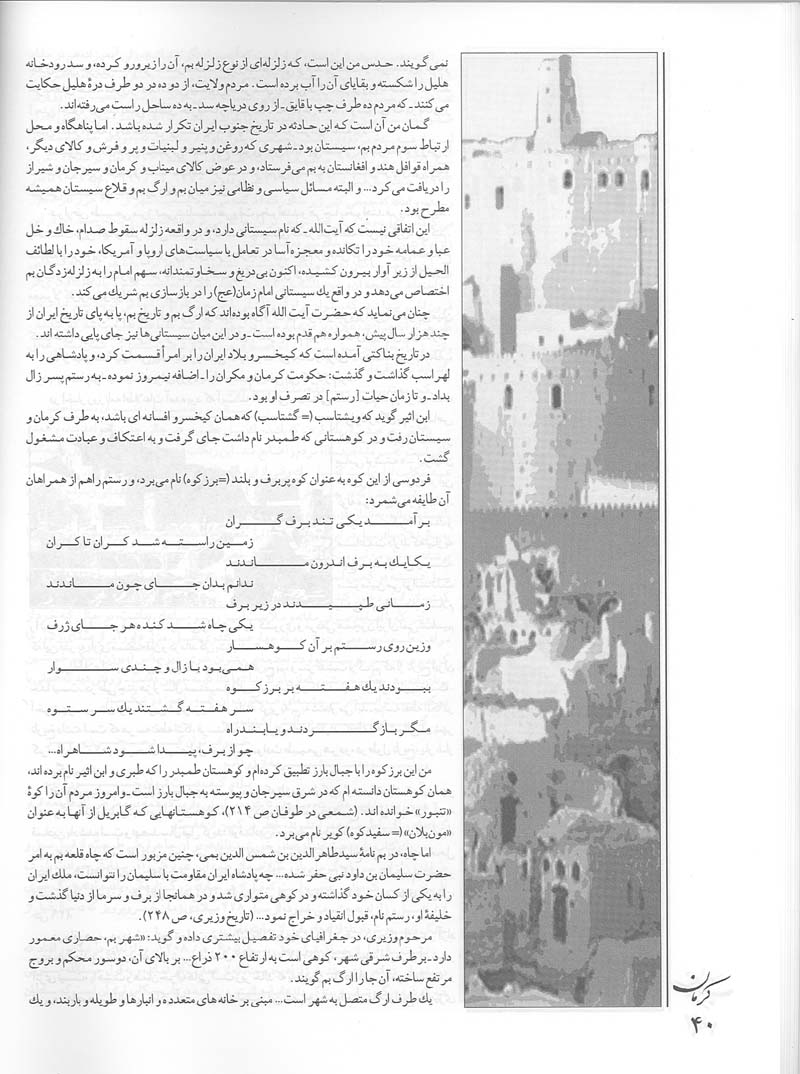 نمی‌گویند. حدس من این است، که زلزله‌ای از نوع زلزله بم، آن را زیرورو کرده، و سد رودخانه
هلیل را شکسته و بقایای آن را آب برده است. مردم ولایت، از دو ده در دو طرف درهٔ هلیل حکایت
می‌کنند ـ که مردم ده طرف چپ با قایق ـ از روی دریاچه سد ـ به ده ساحل راست می‌رفته‌اند.
گمان من آن است که این حادثه در تاریخ جنوب ایران تکرار شده باشد. اما پناهگاه و محل
ارتباط سوم مردم بم، سیستان بود ـ شهری که روغن و پنیر و لبنیات و پر و فرش و کالای دیگر،
همراه قوافل هند و افغانستان به بم می‌فرستاد، و در عوض کالای میناب و کرمان و سیرجان و شیراز
را دریافت می‌کرد... و البته مسائل سیاسی و نظامی نیز میان بم و ارگ بم و قلاع سیستان همیشه
مطرح بود.
این اتفاقی نیست که آیت‌الله ـ که نام سیستانی دارد، و در واقعه زلزله سقوط صدام، خاک و خل
عبا و عمامه خود را تکانده و معجزه‌آسا در تعامل با سیاست‌های اروپا و آمریکا، خود را با لطائف
الحیل از زیر آوار بیرون کشیده، اکنون بی‌دریغ و سخاوتمندانه، سهم امام را به زلزله‌زدگان بم
اختصاص می‌دهد و در واقع یك سیستانی امام زمان(عج) را در بازسازی بم شریك می‌کند.
چنان می‌نماید که حضرت آیت الله آگاه بوده‌اند که ارگ بم و تاریخ بم، پا به پای تاریخ ایران از
چند هزار سال پیش، همواره هم قدم بوده است ـ و در این میان سیستانی‌ها نیز جای پایی داشته اند.
در تاریخ بناکتی آمده است که کیخسرو بلاد ایران را بر امرأ قسمت کرد، و پادشاهی را به
لهراسب گذاشت و گذشت: حکومت کرمان و مکران را ـ اضافه نیمروز نموده ـ به رستم پسر زال
بداد ـ و تا زمان حیات [رستم] در تصرف او بود.
ابن اثیر گوید که ویشتاسب (= گشتاسب) که همان کیخسرو افسانه ای باشد، به طرف کرمان و
سیستان رفت و در کوهستانی که طمبدر نام داشت جای گرفت و به اعتکاف و عبادت مشغول
گشت.
فردوسی از این کوه به عنوان کوه پربرف و بلند (=برزکوه) نام می‌برد، و رستم راهم از همراهان
آن طایفه می‌شمرد:
برآمد یکی تند برف گران
زمین راسته شد کران تا کران
یکایك به برف اندرون ماندند
ندانم بدان جای چون ماندند
زمانی طپیدند در زیر برف
یکی چاه شد کنده هر جای ژرف
وزین روی رستم بر آن کوهسار
همی بود با زال و چندی سوار
ببودند یك هفته بر برز کوه
سر هفته گشتند یك سر ستوه
مگر بازگردند و یابند راه
چو از برف، پیدا شود شاهراه...
من این برزکوه را با جبال بارز تطبیق کرده‌ام و کوهستان طمبدر را که طبری و ابن اثیر نام برده اند،
همان کوهستان دانسته ام که در شرق سیرجان و پیوسته به جبال بارز است ـ و امروز مردم آن را کوهٔ
«تنبور» خوانده اند. (شمعی در طوفان ص ۲۱۴)، کوهستانهایی که گابریل از آنها به عنوان
«مون‌بلان» (= سفیدکوه) کویر نام می‌برد.
اما چاه، در بم نامهٔ سید طاهرالدین بن شمس الدین بمی، چنین مزبور است که چاه قلعه بم به امر
حضرت سلیمان بن داود نبی حفر شده... چه پادشاه ایران مقاومت با سلیمان را نتوانست، ملك ایران
را به یکی از کسان خود گذاشته و در کوهی متواری شد و در همانجا از برف و سرما از دنیا گذشت و
خلیفهٔ او، رستم نام، قبول انقیاد و خراج نمود... (تاریخ وزیری، ص ۲۴۸).
مرحوم وزیری، در جغرافیای خود تفصیل بیشتری داده و گوید: «شهر بم، حصاری معمور
دارد ـ بر طرف شرقی شهر، کوهی است به ارتفاع ۲۰۰ ذراع... بر بالای آن، دوسور محکم و بروج
مرتفع ساخته، آن جا را ارگ بم گویند.
یك طرف ارگ متصل به شهر است... مبنی بر خانه های متعدده و انبارها و طویله و باربند، و یك
کرمان
۴۰